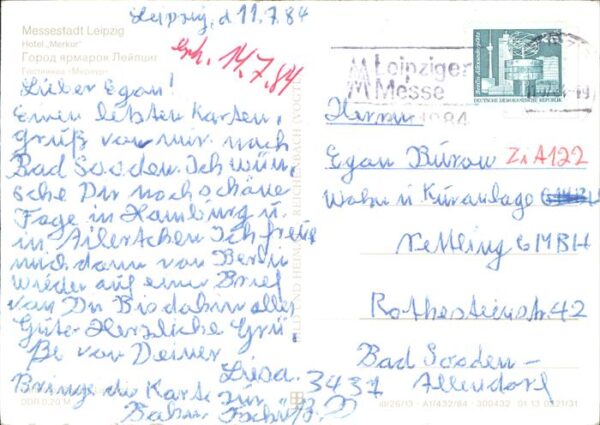 Leipzig, d 11.7.84
Messestadt Leipzig
Hotel „Merkur"
Город ярмарок Лейпциг
Гостиница «Меркур»
erh. 14.7.84
Lieber Egon!
Einen letzten Karten,
gruß von mir nach
Bad Sooden. Ich wün,
sche Dir noch schöne
Tage in Hamburg u.
in Ailertchen. Ich freue
mich dann von Berlin
wieder auf einer Brief
von Dir Bis dahin alles
Gute Herzliche Grü,
ße von Deiner
Lisa.
Bringe die Karte zur
Bahn. Tschüß
DDR 0,20 M
BILD UND HEIMAT REICHENBACH (VOGTL
Leipziger
Messe
1984
Berlin, Alexanderplatz
DEUTSCHE DEMOKRATISCHE REPUBLIK
Herrn
Egon Bürow Zi A122
Wohn u Kuranlage
GMBH
Rothesteinstr. 42
Bad Sooden-
3437 Allendorf
III/26/13 A1/432/84 300432 01 13 0321/31